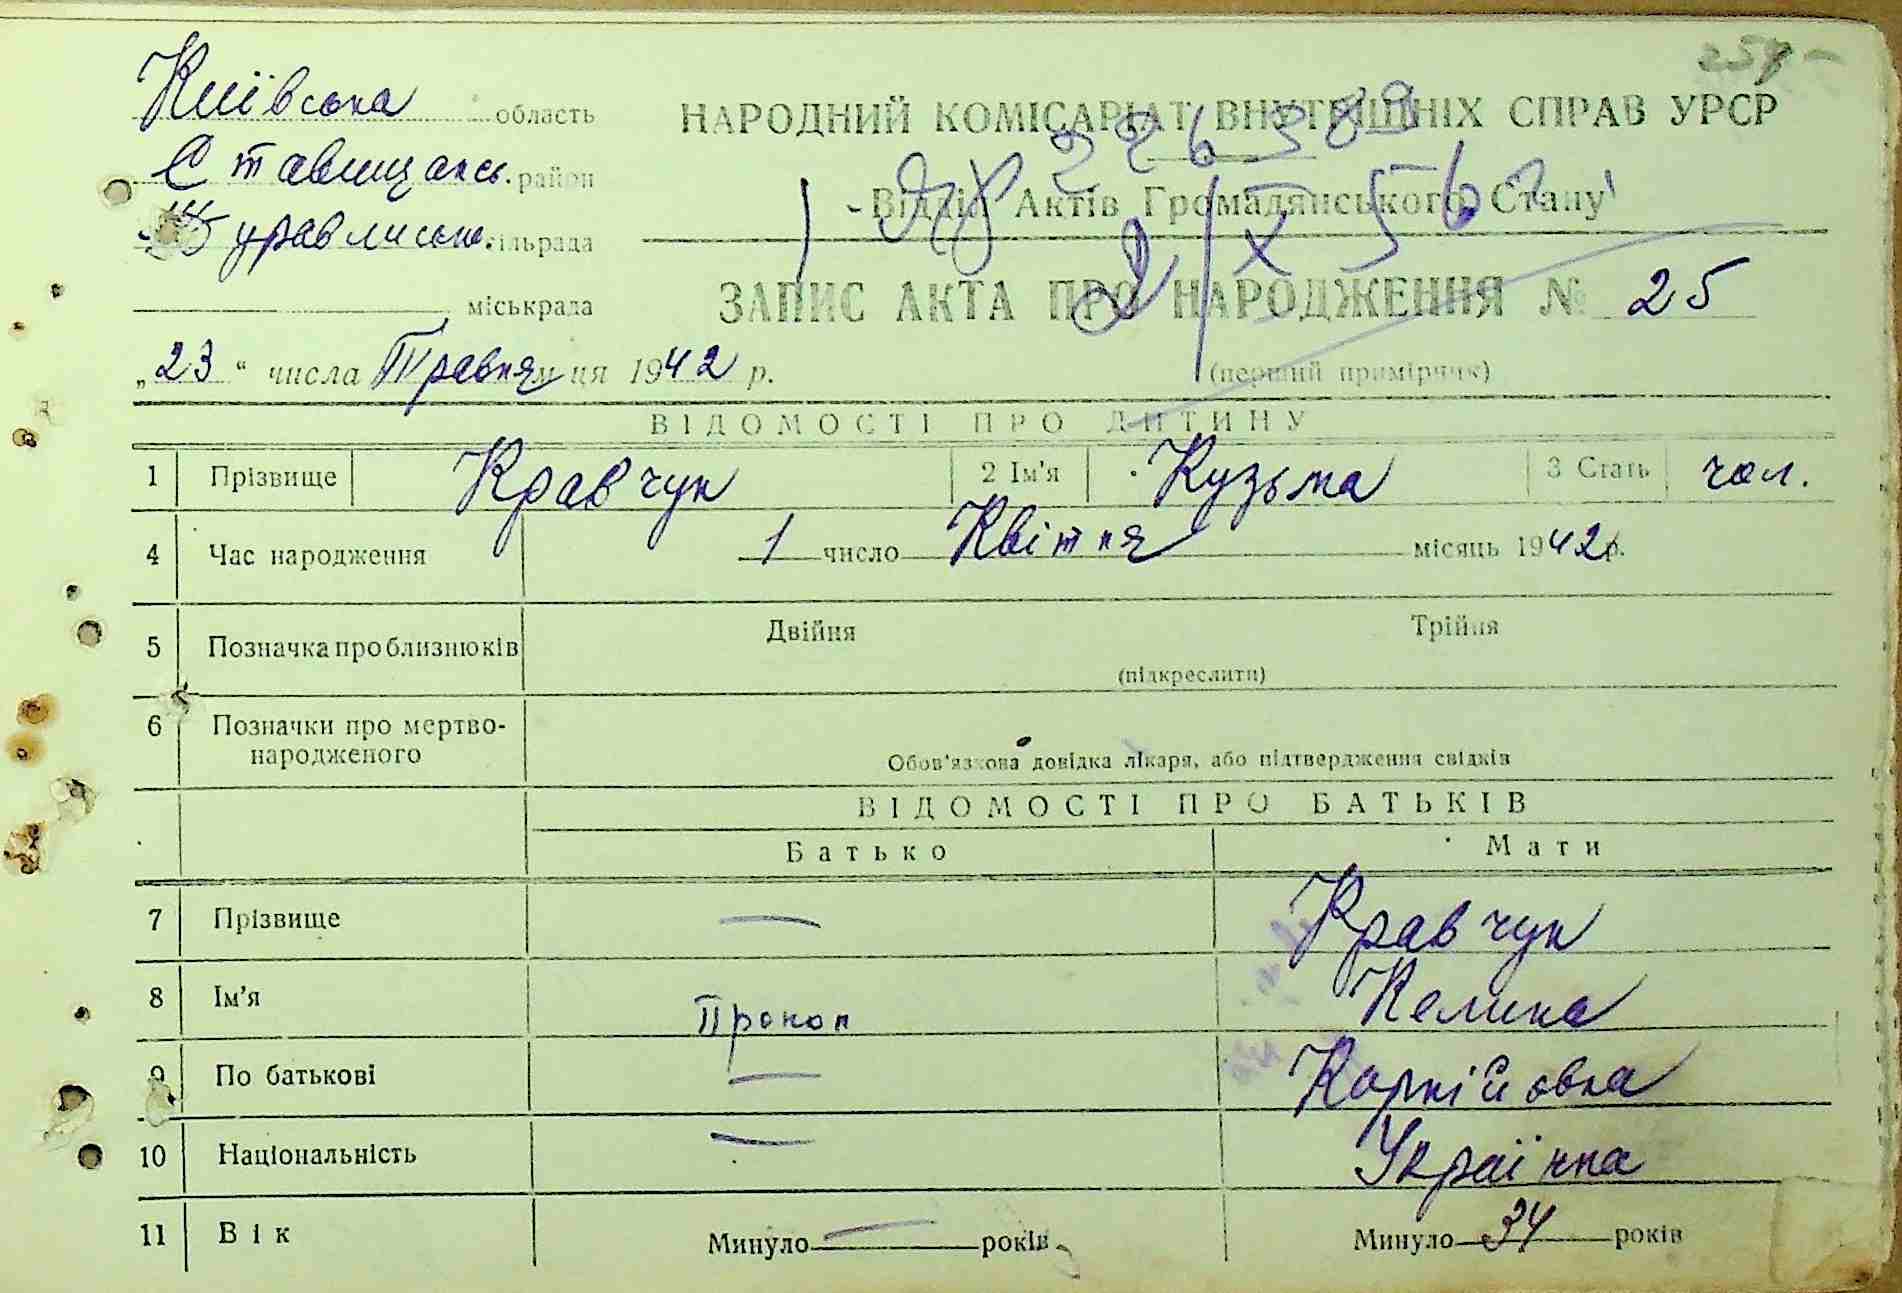 254 –
Київська область
Ставищанськ. район
Журавлиськ. сільрада
міськрада
НАРОДНИЙ КОМІСАРІАТ ВНУТРІШНІХ СПРАВ УРСР
Відділ Актів Громадянського Стану
ЗАПИС АКТА ПРО НАРОДЖЕННЯ № 25
(перший примірник)
„23“ числа Травня м-ця 1942 р.
ВІДОМОСТІ ПРО ДИТИНУ
1 Прізвище Кравчук 2 Ім'я Кузьма 3 Стать чол.
4 Час народження 1 число Квітня місяць 1942р.
5 Позначка про близнюків Двійня Трійня
(підкреслити)
6 Позначки про мертво-
народженого
Обов'язкова довідка лікаря, або підтвердження свідків
ВІДОМОСТІ ПРО БАТЬКІВ
Батько Мати
7 Прізвище — Кравчук
8 Ім'я Прокоп Келина
9 По батькові — Корнійовна
10 Національність — Українка
11 Вік Минуло — років Минуло 34 років